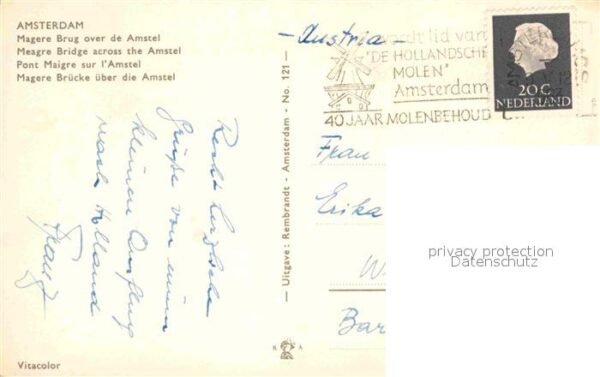 AMSTERDAM
Magere Brug over de Amstel
Meagre Bridge across the Amstel
Pont Maigre sur l'Amstel
Magere Brücke über die Amstel
Recht herzliche
Grüße von einem
kleinen Ausflug
nach Holland
Franz
Vitacolor
— Uitgave: Rembrandt - Amsterdam - No. 121 —
R A
- Austria -
wordt lid van
"DE HOLLANDSCHE
MOLEN"
Amsterdam
40 JAAR MOLENBEHOUD
AMSTERDAM
20 C
NEDERLAND
Frau
Erika
W
Bar
privacy protection
Datenschutz